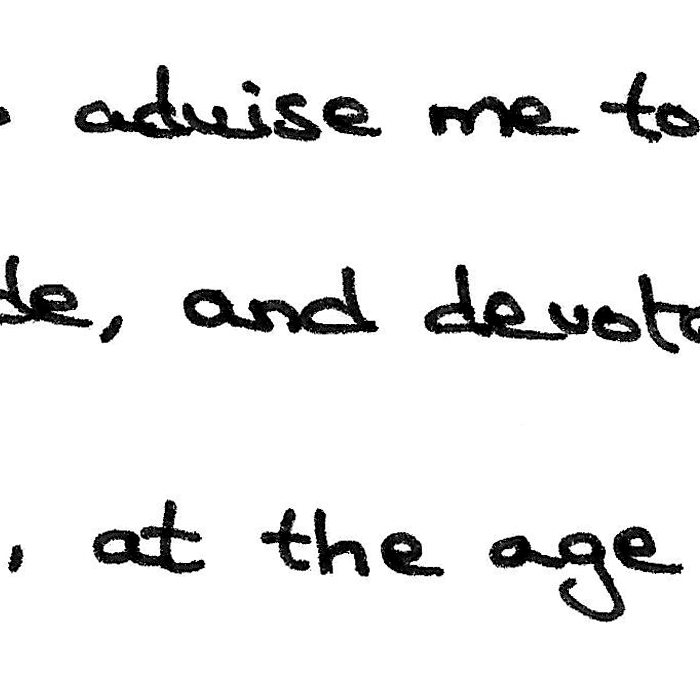 advise me to
de, and devote
, at the age